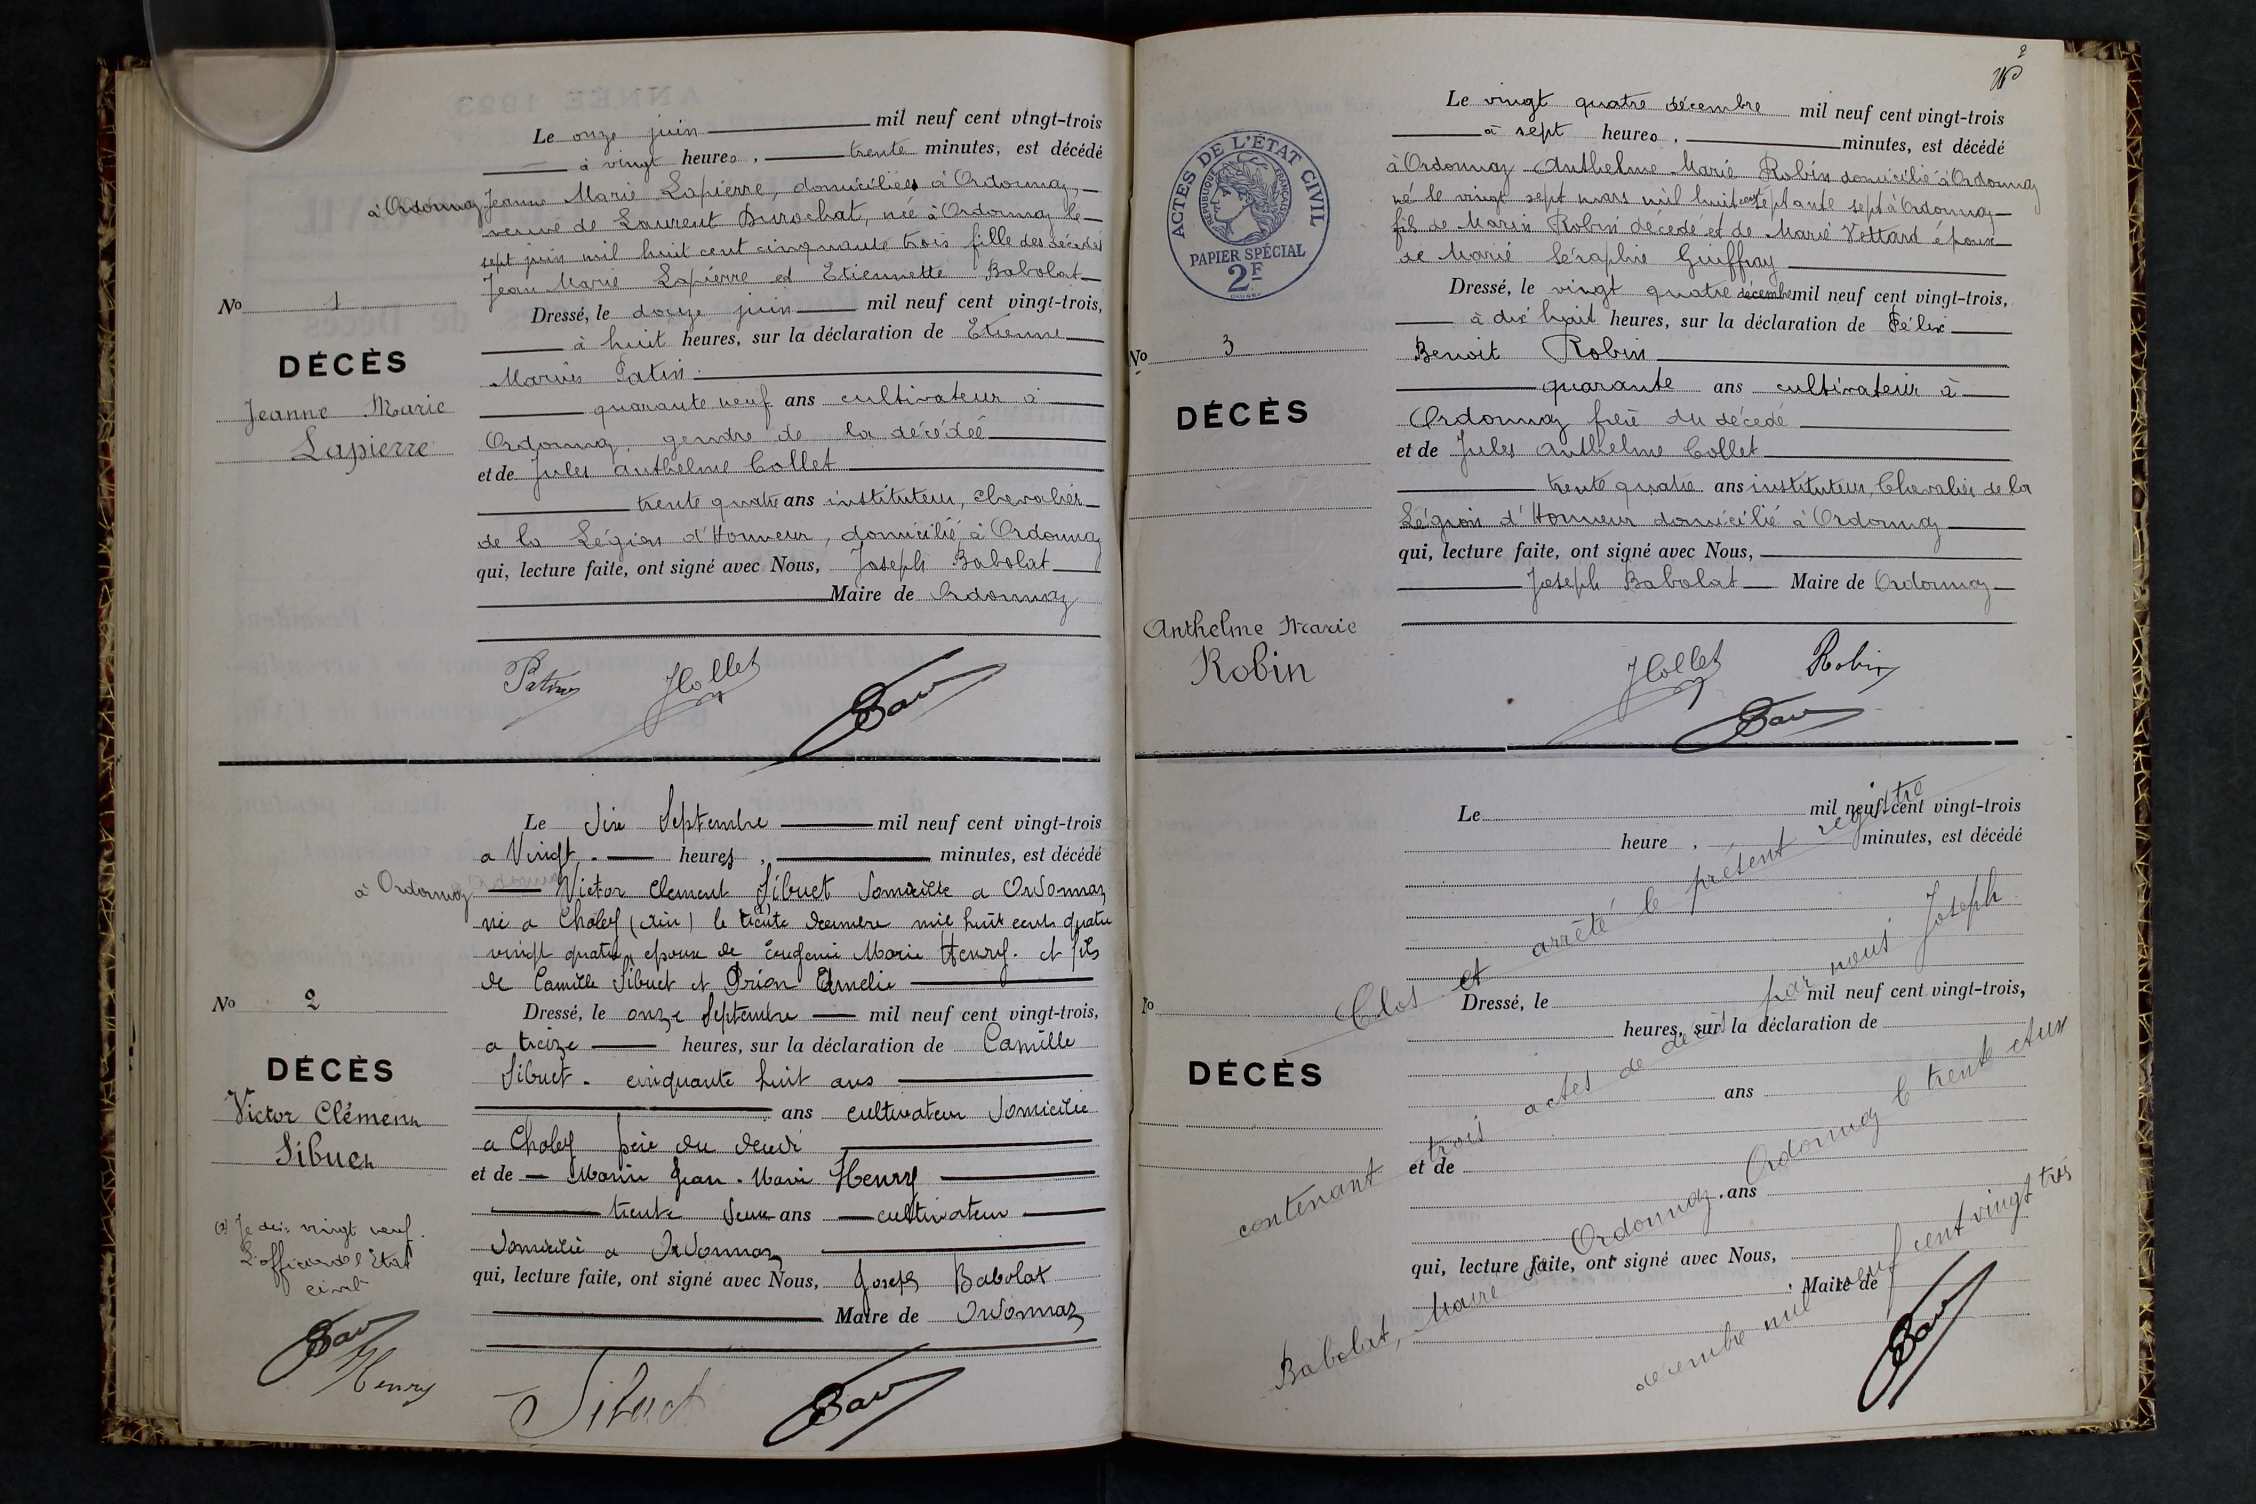 Le onze juin mil neuf cent vingt-trois
à vingt heures, trente minutes, est décédé
à Ordonnaz Jeanne Marie Lapierre, domiciliée à Ordonnaz,
veuve de Laurent Durochat, née à Ordonnaz le
sept juin mil huit cent cinquante trois fille des décédés
Jean Marie Lapierre et Etiennette Babolat
No 1
Dressé, le douze juin mil neuf cent vingt-trois,
à huit heures, sur la déclaration de Etienne
DÉCÈS
Jeanne Marie
Lapierre
Marius Patin.
quarante neuf ans cultivateur à
Ordonnaz gendre de la décédée
et de Jules Anthelme Collet
trente quatre ans instituteur, Chevalier
de la Légion d'Honneur, domicilié à Ordonnaz
qui, lecture faite, ont signé avec Nous, Joseph Babolat
Maire de Ordonnaz
Patin JCollet
Le dix Septembre mil neuf cent vingt-trois
a Vingt heures, minutes, est décédé
à Ordonnaz Victor Clement Sibuet domicilié a Ordonnaz
né a Choley (Ain) le trente decembre mil huit cent quatre
vingt quatre, epoux de Eugenie Marie Henry. et fils
de Camille Sibuet et Amelie
No 2
Dressé, le onze Septembre mil neuf cent vingt-trois,
a treize heures, sur la déclaration de Camille
DÉCÈS
Victor Clément
Sibuet
Sibuet. cinquante huit ans
ans cultivateur domicilié
a Choley père du
et de Marin Jean-Marie Henry
trente deux ans cultivateur
domicilié a Ordonnaz
qui, lecture faite, ont signé avec Nous, Joseph Babolat
Maire de Ordonnaz
vingt neuf.
L'officier de l'Etat
civil
Henry
Sibuet
2
Le vingt quatre décembre mil neuf cent vingt-trois
à sept heures, minutes, est décédé
à Ordonnaz Anthelme Marie Robin domicilié à Ordonnaz
né le vingt sept mars mil huit cent septante sept à Ordonnaz
fils de Marin Robin décédé et de Marie Vettard époux
de Marie Séraphie Guiffray
ACTES DE L'ÉTAT CIVIL
RÉPUBLIQUE FRANÇAISE
PAPIER SPÉCIAL
2F
No 3
Dressé, le vingt quatre décembre mil neuf cent vingt-trois,
à dix huit heures, sur la déclaration de Félix
DÉCÈS
Anthelme Marie
Robin
Benoit Robin
quarante ans cultivateur à
Ordonnaz frère du décédé
et de Jules Anthelme Collet
trente quatre ans instituteur, Chevalier de la
Légion d'Honneur domicilié à Ordonnaz
qui, lecture faite, ont signé avec Nous,
Joseph Babolat Maire de Ordonnaz
JCollet Robin
Le mil neuf cent vingt-trois
heure, minutes, est décédé
No
Dressé, le mil neuf cent vingt-trois,
heures, sur la déclaration de
DÉCÈS
ans
et de
ans
qui, lecture faite, ont signé avec Nous,
Maire de
Clos et arrêté le présent registre
contenant trois actes de décès par nous Joseph
Babolat, Maire d'Ordonnaz. Ordonnaz le trente et un
décembre mil neuf cent vingt trois